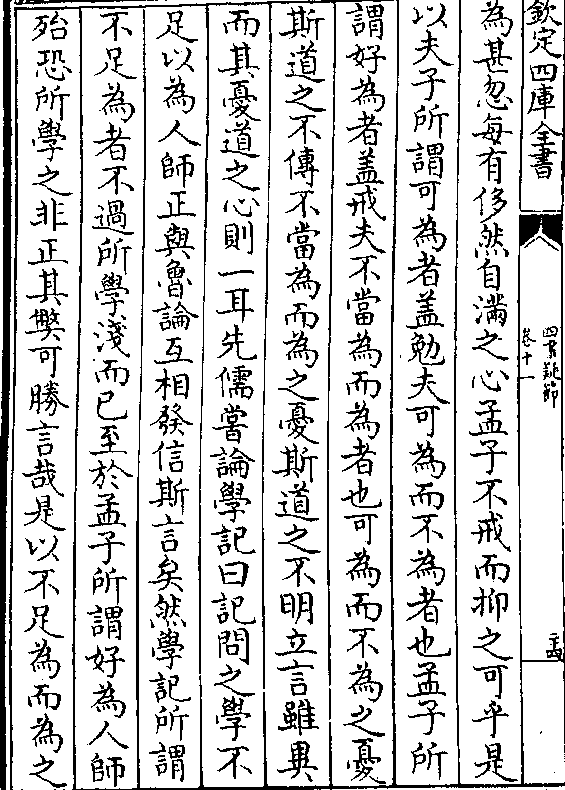 欽定四庫全書
四書疑節
卷十一
為甚忽每有侈然自滿之心孟子不戒而抑之可乎是
以夫子所謂可為者盖勉夫可為而不為者也孟子所
謂好為者盖戒夫不當為而為者也可為而不為之憂
斯道之不傳不當為而為之憂斯道之不明立言雖異
而其憂道之心則一耳先儒嘗論學記曰記問之學不
足以為人師正與魯論互相發信斯言矣然學記所謂
不足為者不過所學淺而已至於孟子所謂好為人師
殆恐所學之非正其弊可勝言哉是以不足為而為之